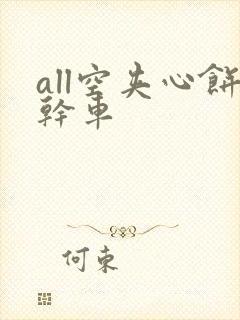 all空夹心餅
幹車
何束